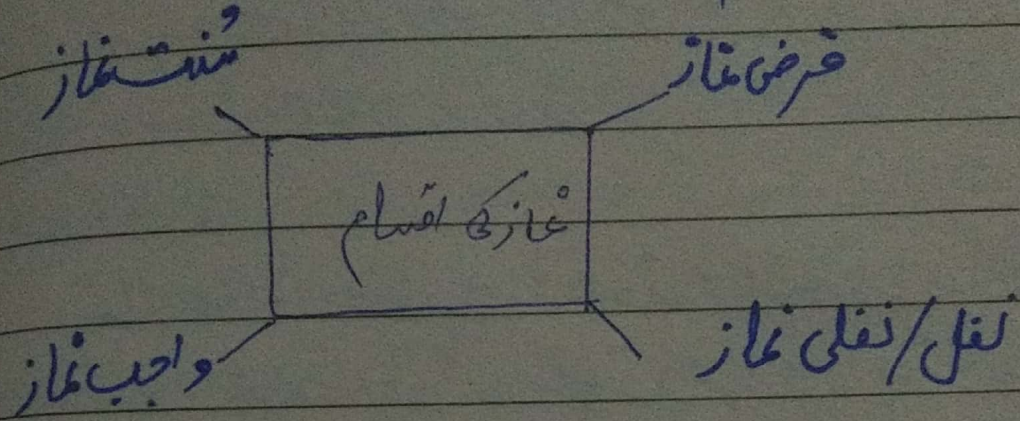 فرض نماز
سُنت نماز
نماز کی اقسام
نفل/نفلی نماز
واجب نماز